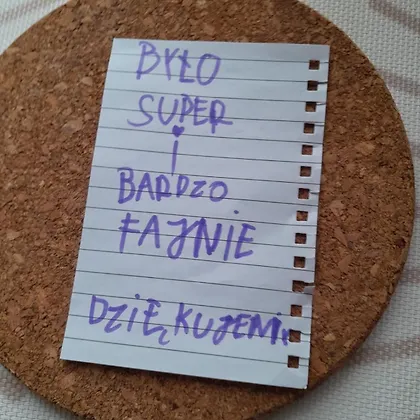 BYŁO
SUPER
i
BARDZO
FAJNIE
DZIĘKUJEMY